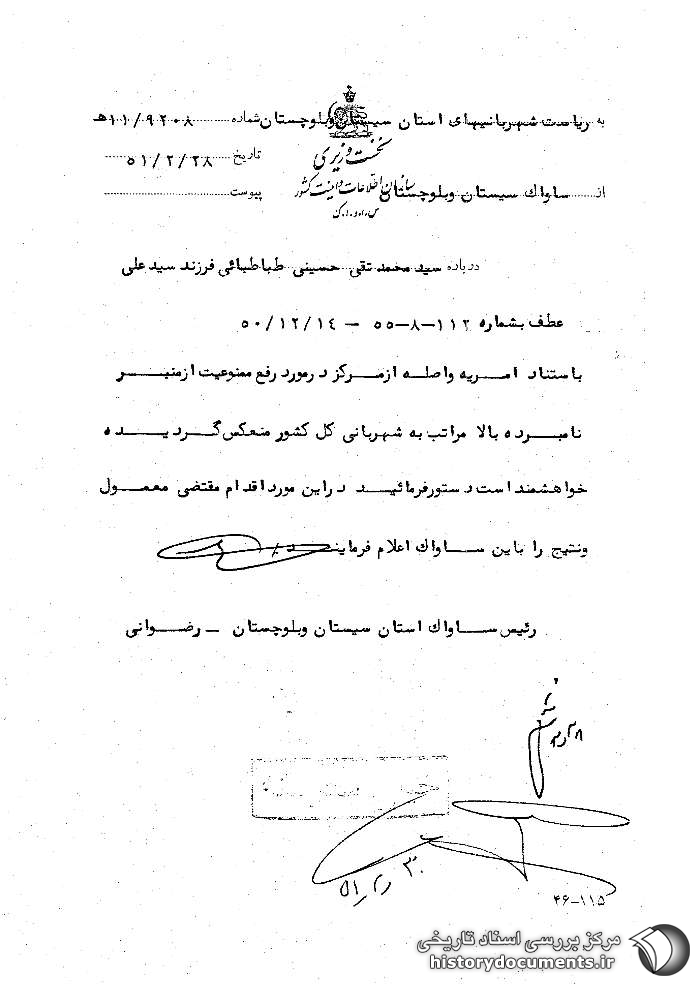 به ریاست شهربانیهای استان سیستان وبلوچستان شماره ۱۱/۹۲۰۸هـ
نخست وزیری
تاریخ ۵۱/۲/۲۸
از ساواک سیستان وبلوچستان سازمان اطلاعات و امنیت کشور پیوست
س.ا.و.ا.ک
درباره سید محمد تقی حسینی طباطبائی فرزند سید علی
عطف بشماره ۱۱۲-۸-۵۵ – ۵۰/۱۲/۱٤
باستناد امـــریه واصله ازمـرکز درمورد رفع ممنوعیت ازمنبـــر
نامبـــرده بالا مراتب به شهربانی کل کشور منعکس گـــردیـــده
خواهشمند است دستورفرمائیــد دراین مورد اقدام مقتضی معمــول
ونتیج را باین ســاواک اعلام فرماینــد
رئیس ســاواک استان سیستان وبلوچستان – رضــوانی
۵۱٫۲٫۳۰
۴۶–۱۱۵
مرکز بررسی اسناد تاریخی
historydocuments.ir